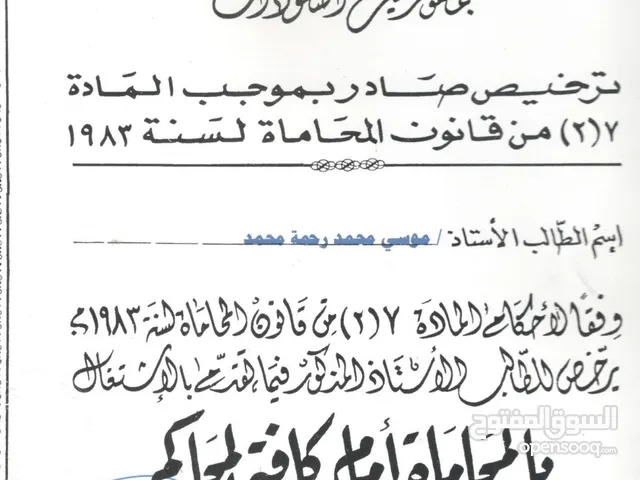 جمهورية السودان
ترخيص صادر بموجب المادة
٧(٢) من قانون المحاماة لسنة ١٩٨٣
إسم الطالب الأستاذ / موسي محمد رحمة محمد
وفقاً لأحكام المادة ٧(٢) من قانون المحاماة لسنة ١٩٨٣م
يرخص للطالب الأستاذ المذكور فيما تقدم بالاشتغال
بالمحاماة أمام كافة المحاكم
السوق المفتوح
opensooq.com